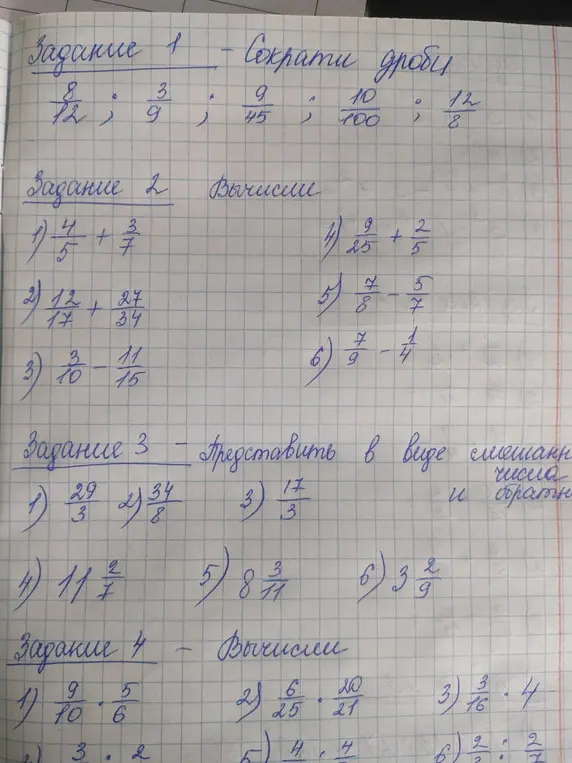 Задание 1 - Сократи дроби
8/12 ; 3/9 ; 9/45 ; 10/100 ; 12/8
Задание 2 Вычисли
1) 4/5 + 3/7 4) 9/25 + 2/5
2) 12/17 + 27/34 5) 7/8 - 5/7
3) 3/10 - 11/15 6) 7/9 - 1/4
Задание 3 - Представить в виде смешанн
числа
1) 29/3 2) 34/8 3) 17/3 и обратн
4) 11 2/7 5) 8 3/11 6) 3 2/9
Задание 4 - Вычисли
1) 9/10 · 5/6 2) 6/25 · 20/21 3) 3/16 · 4